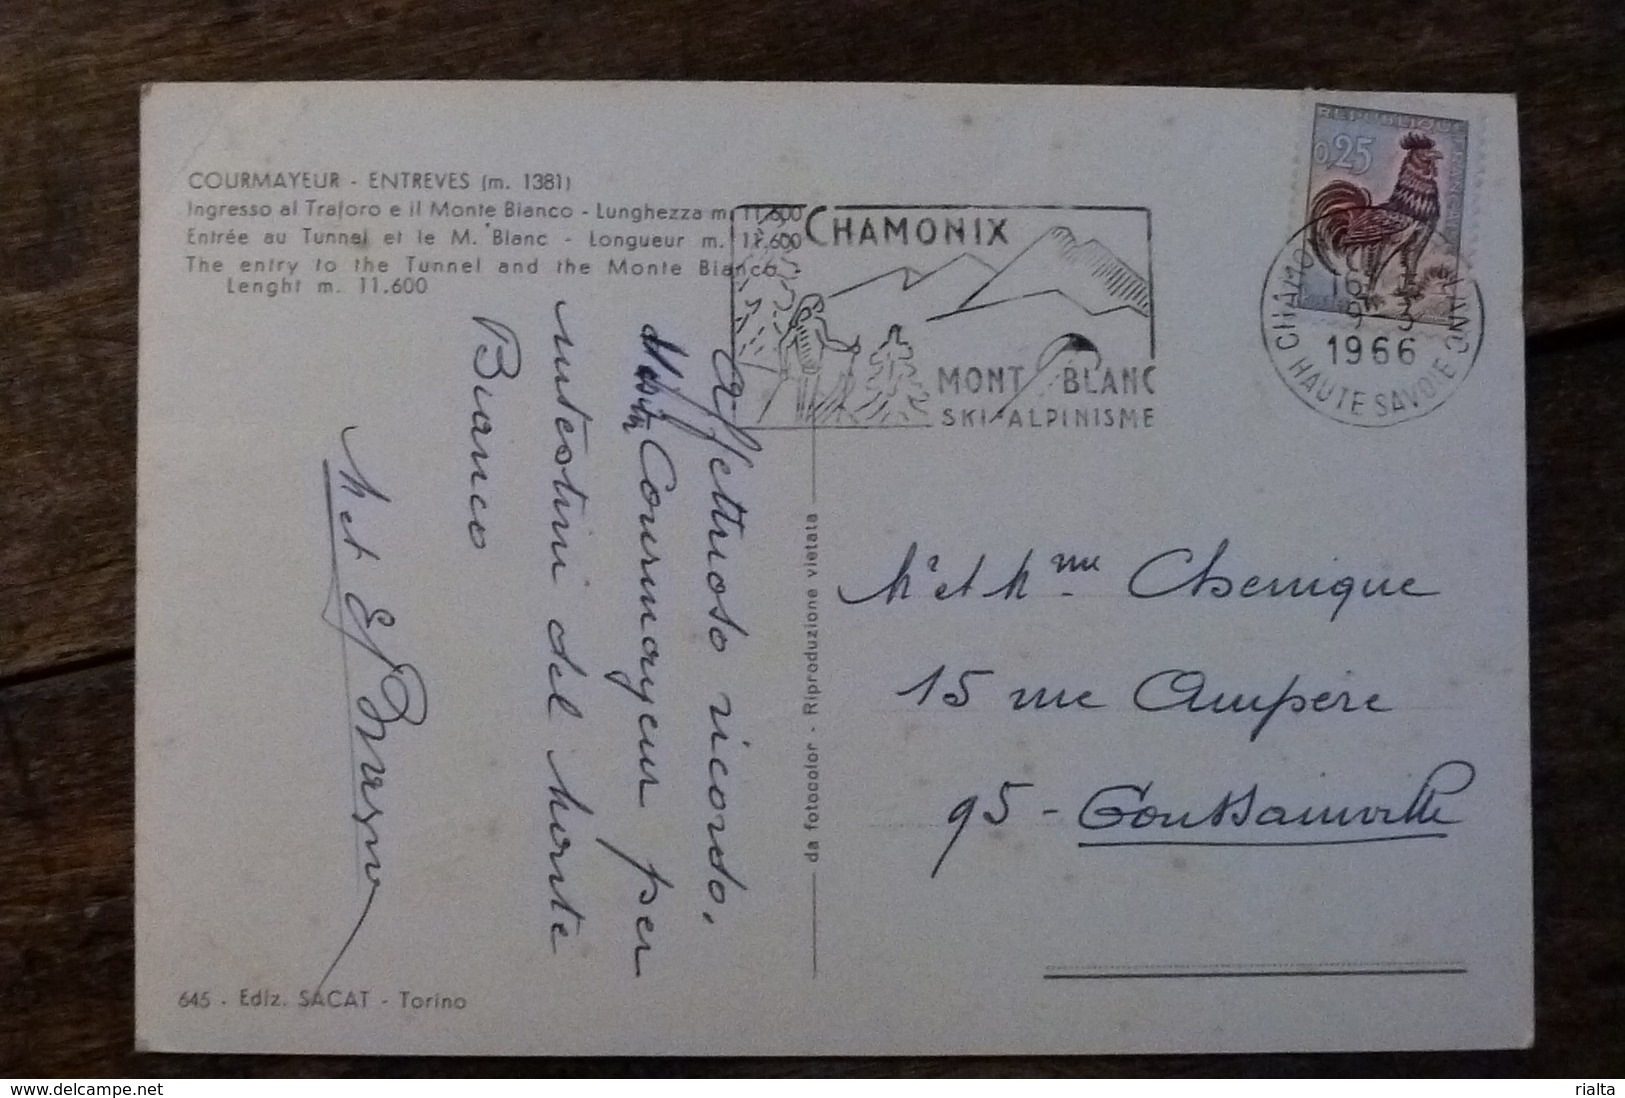 COURMAYEUR - ENTREVES (m. 1381)
Ingresso al Traforo e il Monte Bianco - Lunghezza m. 11.600
Entrée au Tunnel et le M. Blanc - Longueur m. 11.600
The entry to the Tunnel and the Monte Bianco -
Lenght m. 11.600
CHAMONIX
MONT BLANC
SKI-ALPINISME
REPUBLIQUE FRANÇAISE
0,25
16 H
9 - 3
1966
HAUTE SAVOIE
Affettuoso ricordo,
Courmayeur per
intestini del Monte
Bianco
M et
da fotocolor - Riproduzione vietata
Mr et Mme Chenique
15 rue Ampère
95 - Goussainville
645 - Ediz. SACAT - Torino
www.delcampe.net
rialta